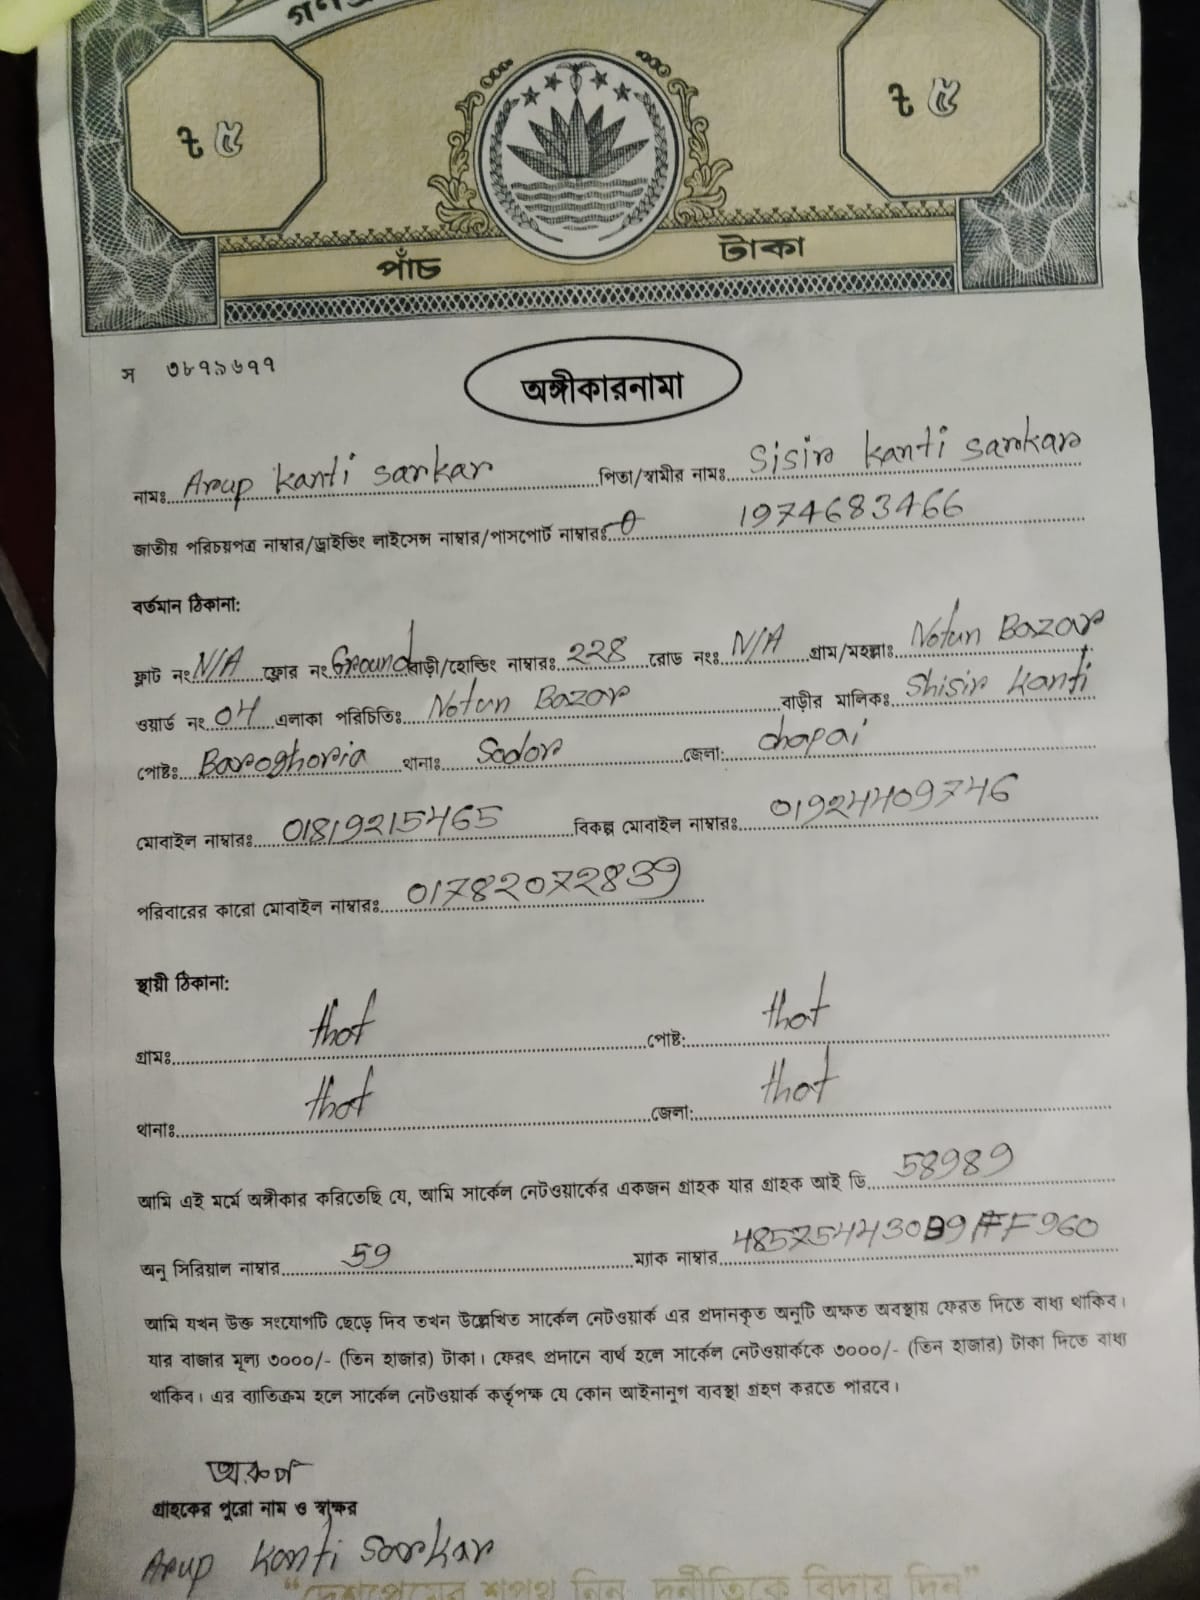 ৳ ৫ ৳ ৫
পাঁচ টাকা
স ৩৮৭১৬৭৭
অঙ্গীকারনামা
নামঃ Arup Kanti Sarkar পিতা/স্বামীর নামঃ Sisir Kanti Sarkar
জাতীয় পরিচয়পত্র নাম্বার/ড্রাইভিং লাইসেন্স নাম্বার/পাসপোর্ট নাম্বারঃ 1974683466
বর্তমান ঠিকানা:
ফ্লাট নং N/A ফ্লোর নং Ground বাড়ী/হোল্ডিং নাম্বারঃ 228 রোড নংঃ N/A গ্রাম/মহল্লাঃ Notun Bazar
ওয়ার্ড নং 04 এলাকা পরিচিতিঃ Notun Bazar বাড়ীর মালিকঃ Shisir Kanti
পোষ্টঃ Baroghoria থানাঃ Sador জেলা: chapai
মোবাইল নাম্বারঃ 01819215465 বিকল্প মোবাইল নাম্বারঃ 01924409746
পরিবারের কারো মোবাইল নাম্বারঃ 01782072839
স্থায়ী ঠিকানা:
গ্রামঃ that পোষ্ট: that
থানাঃ that জেলা: that
আমি এই মর্মে অঙ্গীকার করিতেছি যে, আমি সার্কেল নেটওয়ার্কের একজন গ্রাহক যার গ্রাহক আই ডি 58989
অনু সিরিয়াল নাম্বার 59 ম্যাক নাম্বার
আমি যখন উক্ত সংযোগটি ছেড়ে দিব তখন উল্লেখিত সার্কেল নেটওয়ার্ক এর প্রদানকৃত অনুটি অক্ষত অবস্থায় ফেরত দিতে বাধ্য থাকিব।
যার বাজার মূল্য ৩০০০/- (তিন হাজার) টাকা। ফেরৎ প্রদানে ব্যর্থ হলে সার্কেল নেটওয়ার্ককে ৩০০০/- (তিন হাজার) টাকা দিতে বাধ্য
থাকিব। এর ব্যাতিক্রম হলে সার্কেল নেটওয়ার্ক কর্তৃপক্ষ যে কোন আইনানুগ ব্যবস্থা গ্রহণ করতে পারবে।
অরূপ
গ্রাহকের পুরো নাম ও স্বাক্ষর
Arup Kanti Sarkar
“দেশপ্রেমের শপথ নিন, দুর্নীতিকে বিদায় দিন”